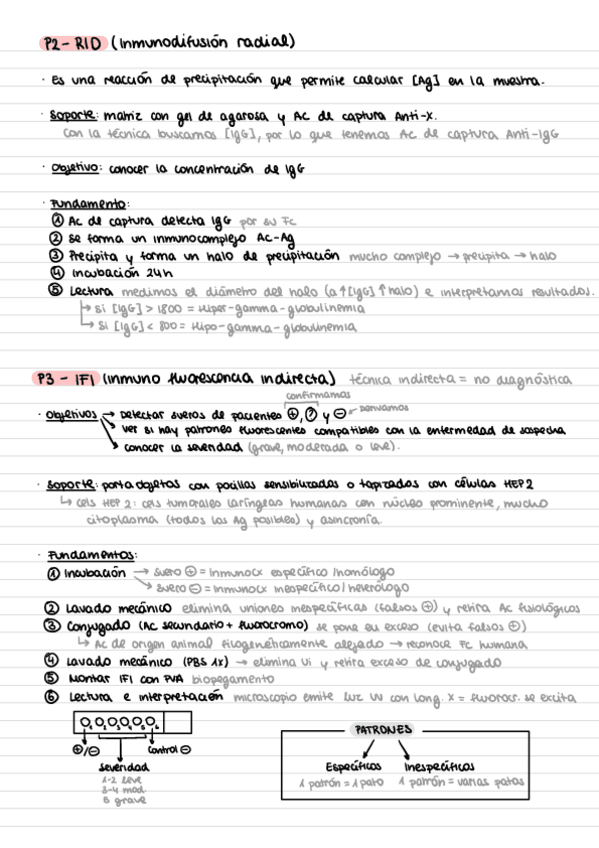 P2 - RID (Inmunodifusión radial)
· Es una reacción de precipitación que permite calcular [Ag] en la muestra.
· Soporte: matriz con gel de agarosa y Ac de captura Anti-X.
Con la técnica buscamos [IgG], por lo que tenemos Ac de captura Anti-IgG
· Objetivo: conocer la concentración de IgG
· Fundamento:
① Ac de captura detecta IgG por su Fc
② Se forma un inmunocomplejo Ac-Ag
③ Precipita y forma un halo de precipitación mucho complejo → precipita → halo
④ Incubación 24h
⑤ Lectura medimos el diámetro del halo (a ↑[IgG] ↑halo) e interpretamos resultados.
↳ Si [IgG] > 1800 = Hiper-gamma-globulinemia
↳ Si [IgG] < 800 = Hipo-gamma-globulinemia
P3 - IFI (Inmuno fluorescencia indirecta) técnica indirecta = no diagnóstica
confirmamos
· Objetivos → Detectar sueros de pacientes ⊕, ? y ⊖ derivamos
→ Ver si hay patrones fluorescentes compatibles con la enfermedad de sospecha
→ conocer la severidad (grave, moderada o leve).
· Soporte: portaobjetos con pocillos sensibilizados o tapizados con células HEP2
↳ cels HEP 2: cels tumorales laríngeas humanas con núcleo prominente, mucho
citoplasma (todos los Ag posibles) y asincronía.
· Fundamentos:
① Incubación → suero ⊕ = inmunoCx específico/homólogo
↘ suero ⊖ = inmunoCx inespecífico/heterólogo
② Lavado mecánico elimina uniones inespecíficas (falsos ⊕) y retira Ac fisiológicos
③ Conjugado (Ac secundario + fluorocromo) se pone su exceso (evita falsos ⊕)
↳ Ac de origen animal filogenéticamente alejado → reconoce Fc humana
④ Lavado mecánico (PBS 1x) → elimina UI y retira exceso de conjugado
⑤ Montar IFI con PVA biopegamento
⑥ Lectura e interpretación microscopio emite luz UV con long. X = fluorocr. se excita
1 2 3 4 5 6
⊕/⊖ control ⊖
severidad
1-2 leve
3-4 mod.
5 grave
PATRONES
Específicos Inespecíficos
1 patrón = 1 pato 1 patrón = varias patos